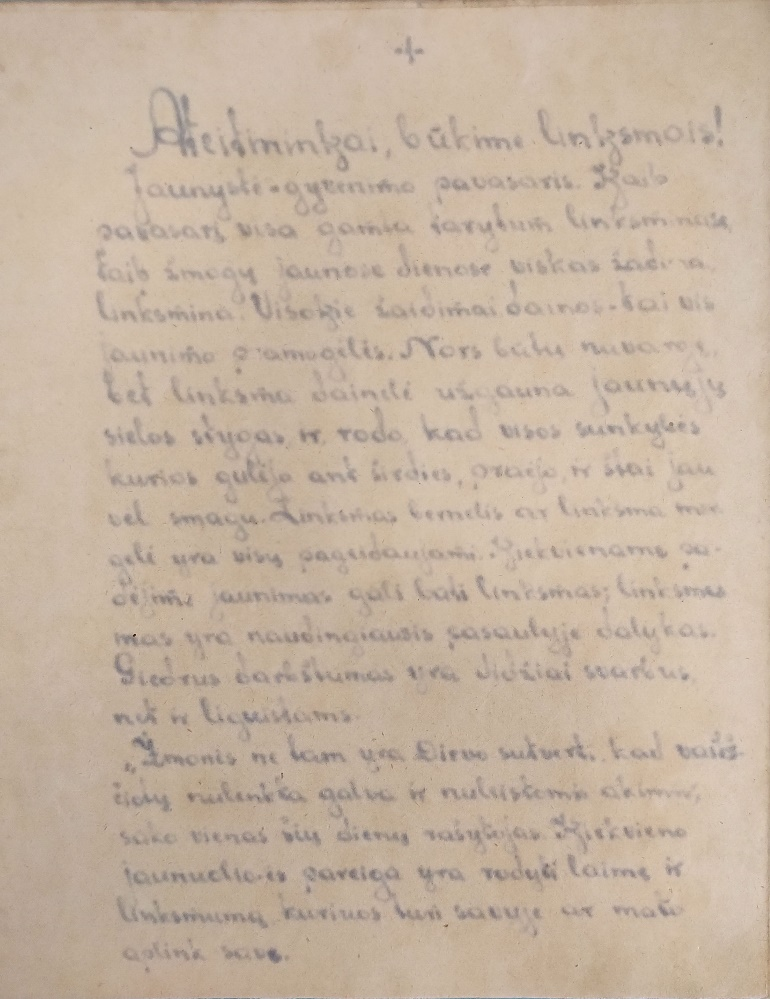 -1-
Ateitininkai, būkime linksmais!
Jaunystė-gyvenimo pavasaris. Kaip
pavasarį visa gamta tarytum linksminasi,
taip žmogų jaunose dienose viskas žadina,
linksmina. Visokie žaidimai, dainos-tai vis
jaunimo pramogėlės. Nors būtų nuvargę,
bet linksma dainelė užgauna jaunųjų
sielos stygas ir rodo, kad visos sunkybės
kurios gulėjo ant širdies, praėjo, ir štai jau
vėl smagu. Linksmas bernelis ar linksma mer-
gelė yra visų pageidaujami. Kiekviename pa-
dėjime jaunimas gali būti linksmas; linksmu-
mas yra naudingiausis pasaulyje dalykas.
Giedrus darbštumas yra didžiai svarbus
net ir liguistams.
„Žmonės ne tam yra Dievo sutverti, kad
nulenkta galva ir nuleistomis akimis,
sako vienas šių dienų rašytojas. Kiekvieno
jaunuolio-ės pareiga yra rodyti laimę ir
linksmumą, kuriuos turi savyje ar mato
aplink save.